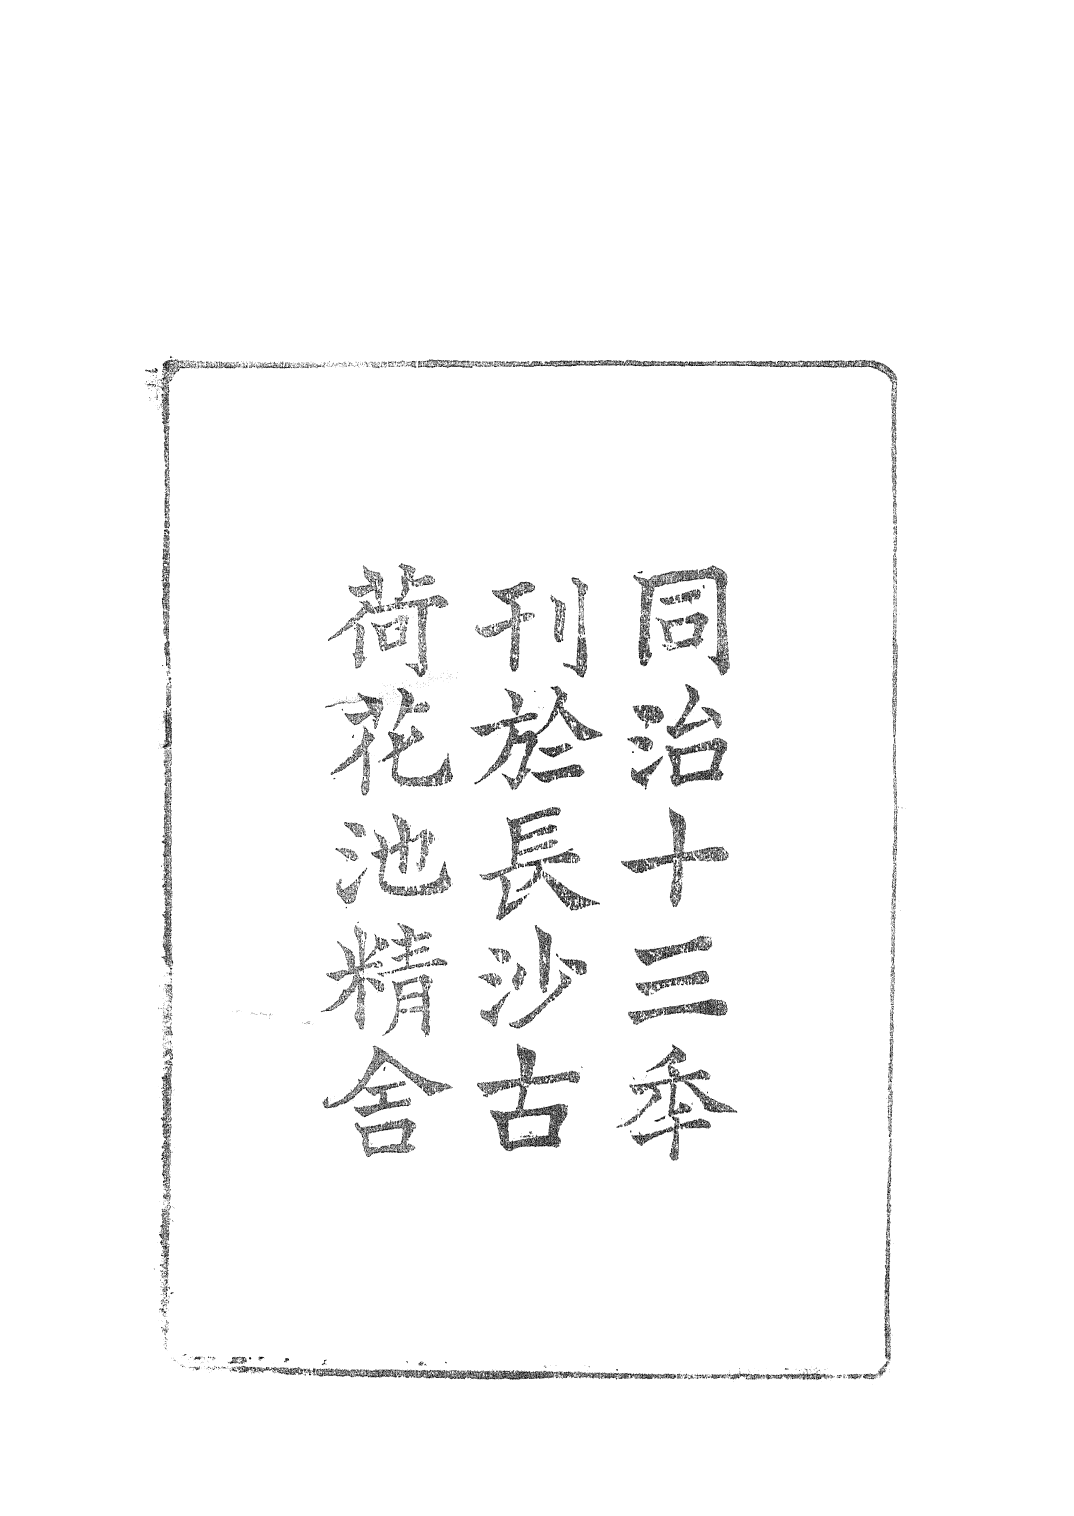 同治十三年
刊於長沙古
荷花池精舍